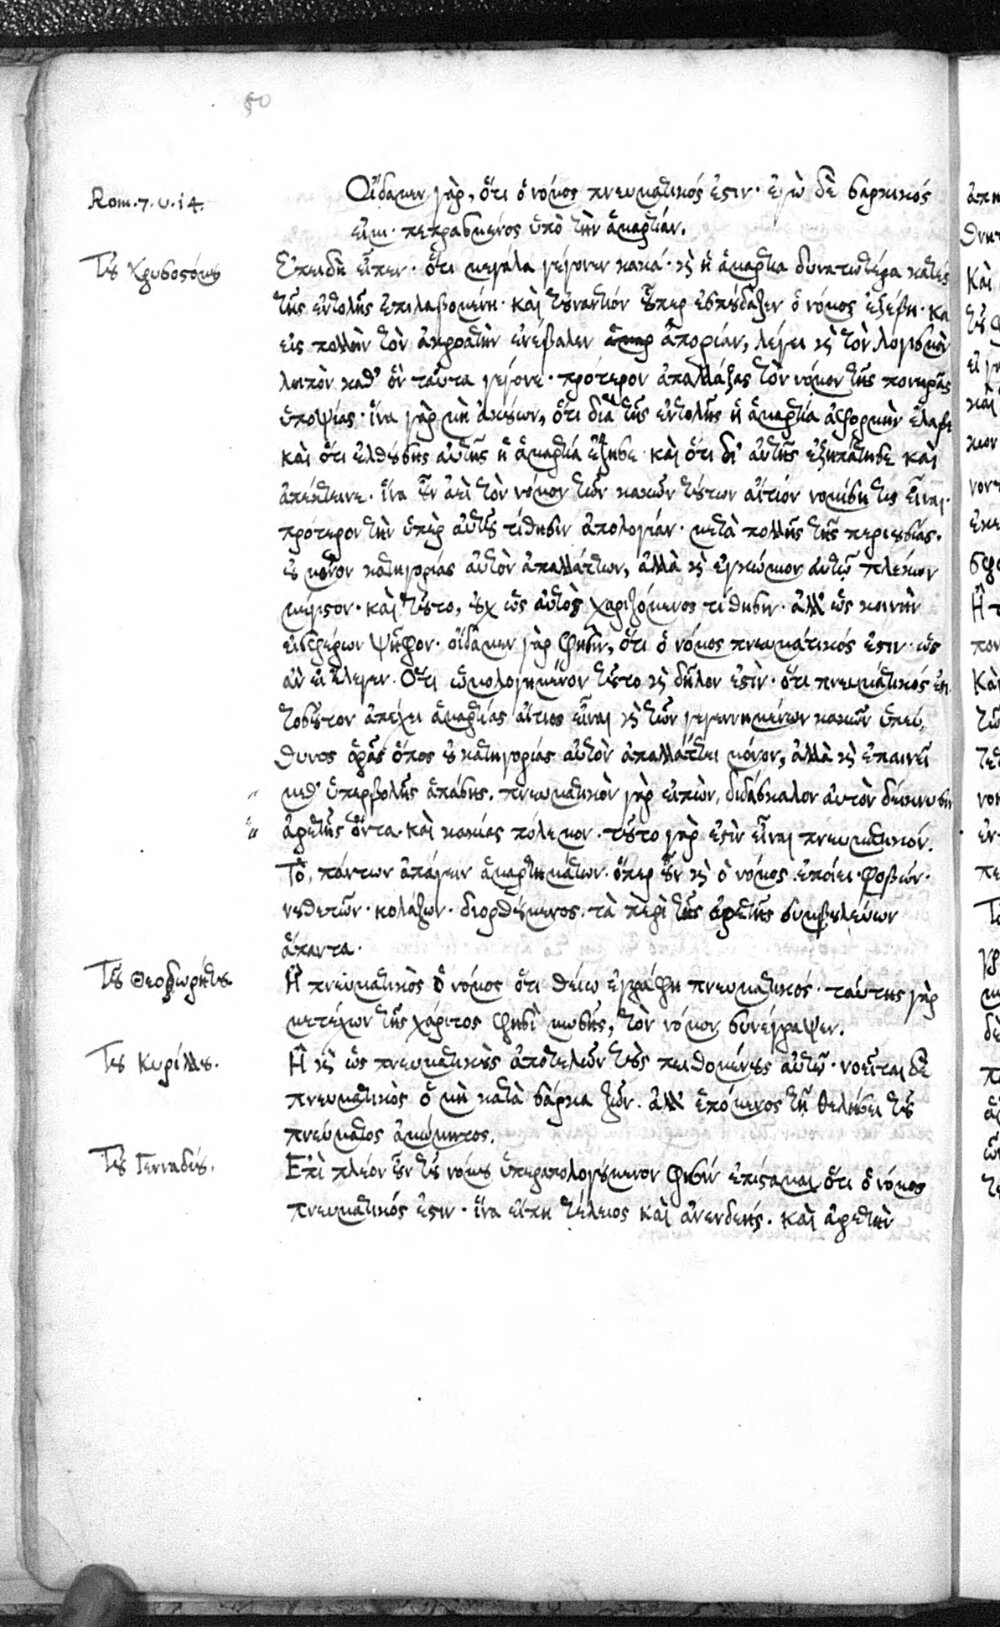 50
Rom. 7. v. 14.
Οἴδαμεν γὰρ, ὅτι ὁ νόμος πνευματικός ἐστιν· ἐγὼ δὲ σαρκικός
εἰμι· πεπραμένος ὑπὸ τὴν ἁμαρτίαν.
Τοῦ Χρυσοστόμου
Ἐπειδὴ εἶπεν· ὅτι μεγάλα γέγονεν κακά· καὶ ἡ ἁμαρτία δυνατωτέρα κατέσ
τῆς ἐντολῆς ἐπιλαβομένη· καὶ τοὐναντίον οὗπερ ἐσπούδαζεν ὁ νόμος ἐξέβη· κα
εἰς πολλὴν τὸν ἀκροατὴν ἐνέβαλεν ἀπορίαν, λέγει καὶ τὸν λογισμὸν
λοιπὸν καθ' ὃν ταῦτα γέγονε· πρότερον ἀπαλλάξας τὸν νόμον τῆς πονηρᾶς
ὑποψίας· ἵνα γὰρ μὴ ἀκούων, ὅτι διὰ τῆς ἐντολῆς ἡ ἁμαρτία ἀφορμὴν ἔλαβε
καὶ ὅτι ἐλθούσης αὐτῆς ἡ ἁμαρτία ἔζησε· καὶ ὅτι δι' αὐτῆς ἐξηπάτησε καὶ
ἀπέκτεινε· ἵνα οὖν μὴ τὸν νόμον τῶν κακῶν τούτων αἴτιόν νομίσῃ τις εἶναι·
πρότερον τὴν ὑπὲρ αὐτοῦ τίθησιν ἀπολογίαν· μετὰ πολλῆς τῆς περιουσίας·
οὐ μόνον κατηγορίας αὐτὸν ἀπαλλάττων, ἀλλὰ καὶ ἐγκώμιον αὐτῷ πλέκων
μέγιστον· καὶ τοῦτο, οὐχ ὡς αὐτὸς χαριζόμενος τίθησιν· ἀλλ' ὡς κοινὴν
εἰσφέρων ψῆφον· οἴδαμεν γὰρ φησὶν, ὅτι ὁ νόμος πνευματικός ἐστιν· ὡς
ἂν εἰ ἔλεγεν· Ὅτι ὡμολογημένον τοῦτο καὶ δῆλον ἐστὶν· ὅτι πνευματικός ἐστι
τοσοῦτον ἀπέχει ἁμαρτίας αἴτιος εἶναι καὶ τῶν γεγενημένων κακῶν ὑπεύ
θυνος ὅρας ὅπως οὐ κατηγορίας αὐτὸν ἀπαλλάττει μόνον, ἀλλὰ καὶ ἐπαινεῖ
μεθ' ὑπερβολῆς ἁπάσης. πνευματικὸν γὰρ εἰπὼν, διδάσκαλον αὐτὸν δείκνυσιν
ἀρετῆς ὄντα· καὶ κακίας πόλεμον· τοῦτο γὰρ ἐστὶν εἶναι πνευματικόν.
Τὸ, πάντων ἀπάγειν ἁμαρτημάτων· ὅπερ οὖν καὶ ὁ νόμος ἐποίει· φοβῶν·
νουθετῶν· κολάζων· διορθούμενος· τὰ περὶ τῆς ἀρετῆς συμβουλεύων
ἅπαντα.
Τοῦ Θεοδωρήτου.
Ἢ πνευματικὸς ὁ νόμος ὅτι θείῳ ἐγράφη πνευματικός· ταύτης γὰρ
μετέχων τῆς χάριτος φησὶ μωσῆς, τὸν νόμον συνέγραψεν.
Τοῦ Κυρίλλου.
Ἢ καὶ ὡς πνευματικοὺς ἀποτελῶν τοὺς πειθομένους αὐτῷ· νοεῖται δὲ
πνευματικὸς ὁ μὴ κατὰ σάρκα ζῶν· ἀλλ' ἑπόμενος τῇ θελήσει τοῦ
πνεύματος ἀκώμητος.
Τοῦ Γενναδίου.
Ἐπὶ πλέον οὖν τοῦ νόμου ὑπεραπολογούμενον φησίν ἐπίσταμαι ὅτι ὁ νόμος
πνευματικός ἐστιν· ἵνα εἴπῃ τέλειος καὶ ἀνενδεής· καὶ ἀρετὴν